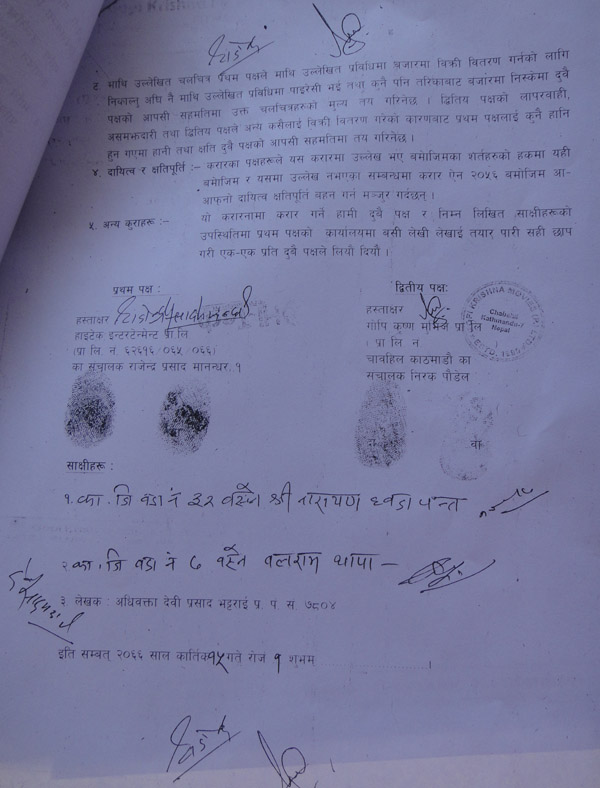 ङ. माथि उल्लेखित चलचित्र प्रथम पक्षले माथि उल्लेखित प्रविधिमा बजारमा बिक्री वितरण गर्नको लागि
निकाल्नु अघि नै माथि उल्लेखित प्रविधिमा पाइरेसी भई तथा कुनै पनि तरिकाबाट बजारमा निस्केमा दुवै
पक्षको आपसी सहमतिमा उक्त चलचित्रहरुको मुल्य तय गरिनेछ । द्वितिय पक्षको लापरवाही,
असमझदारी तथा द्वितिय पक्षले अन्य कसैलाई विक्री वितरण गरेको कारणबाट प्रथम पक्षलाई कुनै हानि
हुन गएमा हानी तथा क्षति दुवै पक्षको आपसी सहमतिमा तय गरिनेछ ।
४. दायित्व र क्षतिपूर्ति :- करारका पक्षहरूले यस करारमा उल्लेख भए बमोजिमका शर्तहरुको हकमा यही
बमोजिम र यसमा उल्लेख नभएका सम्बन्धमा करार ऐन २०५६ बमोजिम आ-
आफनो दायित्व क्षतिपुर्ति बहन गर्न मञ्जुर गर्दछन् ।
५. अन्य कुराहरू :- यो करारनामा करार गर्ने हामी दुवै पक्ष र निम्न लिखित साक्षीहरूको
उपस्थितिमा प्रथम पक्षको कार्यालयमा बसी लेखी लेखाई तयार पारी सही छाप
गरी एक-एक प्रति दुबै पक्षले लियौं दियौं ।
प्रथम पक्ष :
हस्ताक्षर
हाइटेक इन्टरटेन्मेन्ट प्रा.लि.
(प्रा लि न ६२६१६/०६५/०६६)
का संचालक राजेन्द्र प्रसाद मानन्धर. १
द्वितीय पक्ष:
हस्ताक्षर
गोपि कृष्ण मुभिज प्रा लि
(प्रा लि न
चावहिल काठमाडौ का
संचालक निरक पौडेल
GOPI KRISHNA MOVIES (P.)
Chabahil
Kathmandu-7
Nepal
दा
बाँ
साक्षीहरू :
१. का. जि वडा नं ३२ बस्ने श्री नारायण
२. का. जि वडा नं ७ बस्ने बलराम थापा -
३ लेखक : अधिवक्ता देवी प्रसाद भट्टराई प्र. प. स ७८०४
इति सम्बत् २०६६ साल कार्तिक १५ गते रोज १ शुभम् ।